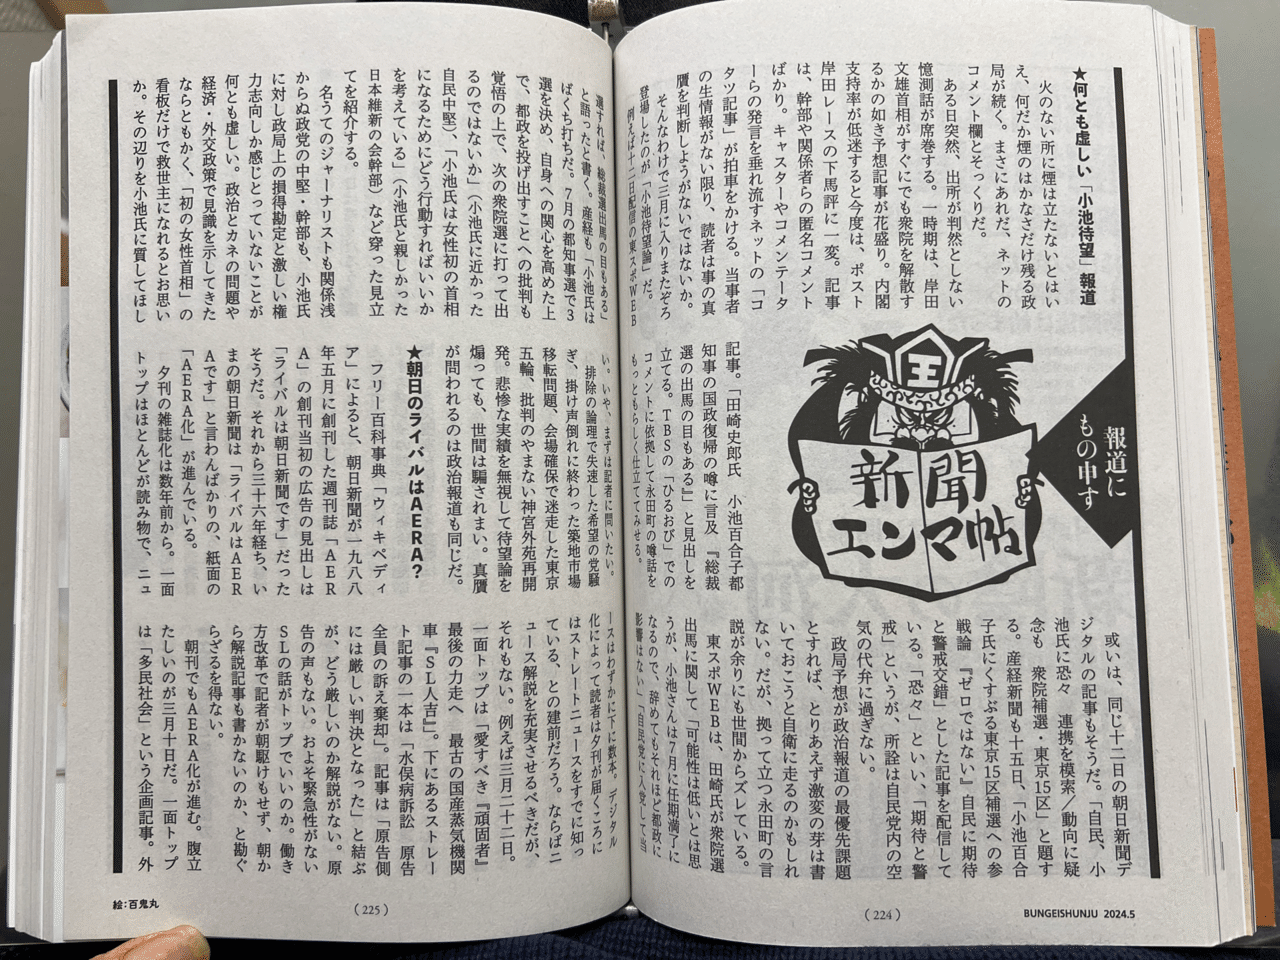 報道に
もの申す
新聞
エンマ帖
王
★何とも虚しい「小池待望」報道
火のない所に煙は立たないとはい
え、何だか煙のはかなさだけ残る政
局が続く。まさにあれだ、ネットの
コメント欄とそっくりだ。
ある日突然、出所が判然としない
憶測話が席巻する。一時期は、岸田
文雄首相がすぐにでも衆院を解散す
るかの如き予想記事が花盛り。内閣
支持率が低迷すると今度は、ポスト
岸田レースの下馬評に一変。記事
は、幹部や関係者らの匿名コメント
ばかり。キャスターやコメンテータ
ーらの発言を垂れ流すネットの「コ
タツ記事」が拍車をかける。当事者
の生情報がない限り、読者は事の真
贋を判断しようがないではないか。
そんなわけで三月に入りまたぞろ
登場したのが「小池待望論」だ。
例えば十二日配信の東スポＷＥＢ
記事。「田崎史郎氏　小池百合子都
知事の国政復帰の噂に言及　『総裁
選の出馬の目もある』」と見出しを
立てる。ＴＢＳの「ひるおび」での
コメントに依拠して永田町の噂話を
もっともらしく仕立ててみせる。
或いは、同じ十二日の朝日新聞デ
ジタルの記事もそうだ。「自民、小
池氏に恐々　連携を模索／動向に疑
念も　衆院補選・東京15区」と題す
る。産経新聞も十五日、「小池百合
子氏にくすぶる東京15区補選への参
戦論　『ゼロではない』自民に期待
と警戒交錯」とした記事を配信して
いる。「恐々」といい、「期待と警
戒」というが、所詮は自民党内の空
気の代弁に過ぎない。
政局予想が政治報道の最優先課題
とすれば、とりあえず激変の芽は書
いておこうと自衛に走るのかもしれ
ない。だが、拠って立つ永田町の言
説が余りにも世間からズレている。
東スポＷＥＢは、田崎氏が衆院選
出馬に関して「可能性は低いとは思
うが、小池さんは7月に任期満了に
なるので、辞めてもそれほど都政に
影響はない」「自民党に入党して当
選すれば、総裁選出馬の目もある」
と語ったと書く。産経も「小池氏は
ばくち打ちだ。7月の都知事選で3
選を決め、自身への関心を高めた上
で、都政を投げ出すことへの批判も
覚悟の上で、次の衆院選に打って出
るのではないか」（小池氏に近かった
自民中堅）、「小池氏は女性初の首相
になるためにどう行動すればいいか
を考えている」（小池氏と親しかった
日本維新の会幹部）など穿った見立
てを紹介する。
名うてのジャーナリストも関係浅
からぬ政党の中堅・幹部も、小池氏
に対し政局上の損得勘定と激しい権
力志向しか感じとっていないことが
何とも虚しい。政治とカネの問題や
経済・外交政策で見識を示してきた
ならともかく、「初の女性首相」の
看板だけで救世主になれるとお思い
か。その辺りを小池氏に質してほし
い。いや、まずは記者に問いたい。
排除の論理で失速した希望の党騒
ぎ、掛け声倒れに終わった築地市場
移転問題、会場確保で迷走した東京
五輪、批判のやまない神宮外苑再開
発。悲惨な実績を無視して待望論を
煽っても、世間は騙されまい。真贋
が問われるのは政治報道も同じだ。
★朝日のライバルはＡＥＲＡ？
フリー百科事典「ウィキペディ
ア」によると、朝日新聞が一九八八
年五月に創刊した週刊誌「ＡＥＲ
Ａ」の創刊当初の広告の見出しは
「ライバルは朝日新聞です」だった
そうだ。それから三十六年経ち、い
まの朝日新聞は「ライバルはＡＥＲ
Ａです」と言わんばかりの、紙面の
「ＡＥＲＡ化」が進んでいる。
夕刊の雑誌化は数年前から。一面
トップはほとんどが読み物で、ニュ
ースはわずかに下に数本。デジタル
化によって読者は夕刊が届くころに
はストレートニュースをすでに知っ
ている、との建前だろう。ならば二
ュース解説を充実させるべきだが、
それもない。例えば三月二十二日。
一面トップは「愛すべき『頑固者』
最後の力走へ　最古の国産蒸気機関
車『ＳＬ人吉』」。下にあるストレー
ト記事の一本は「水俣病訴訟　原告
全員の訴え棄却」。記事は「原告側
には厳しい判決となった」と結ぶ
が、どう厳しいのか解説がない。原
告の声もない。およそ緊急性がない
ＳＬの話がトップでいいのか。働き
方改革で記者が朝駆けもせず、朝か
ら解説記事も書かないのか、と勘ぐ
らざるを得ない。
朝刊でもＡＥＲＡ化が進む。腹立
たしいのが三月十日だ。一面トップ
は「多民社会」という企画記事。外
絵：百鬼丸
（225）
（224）
BUNGEISHUNJU 2024.5